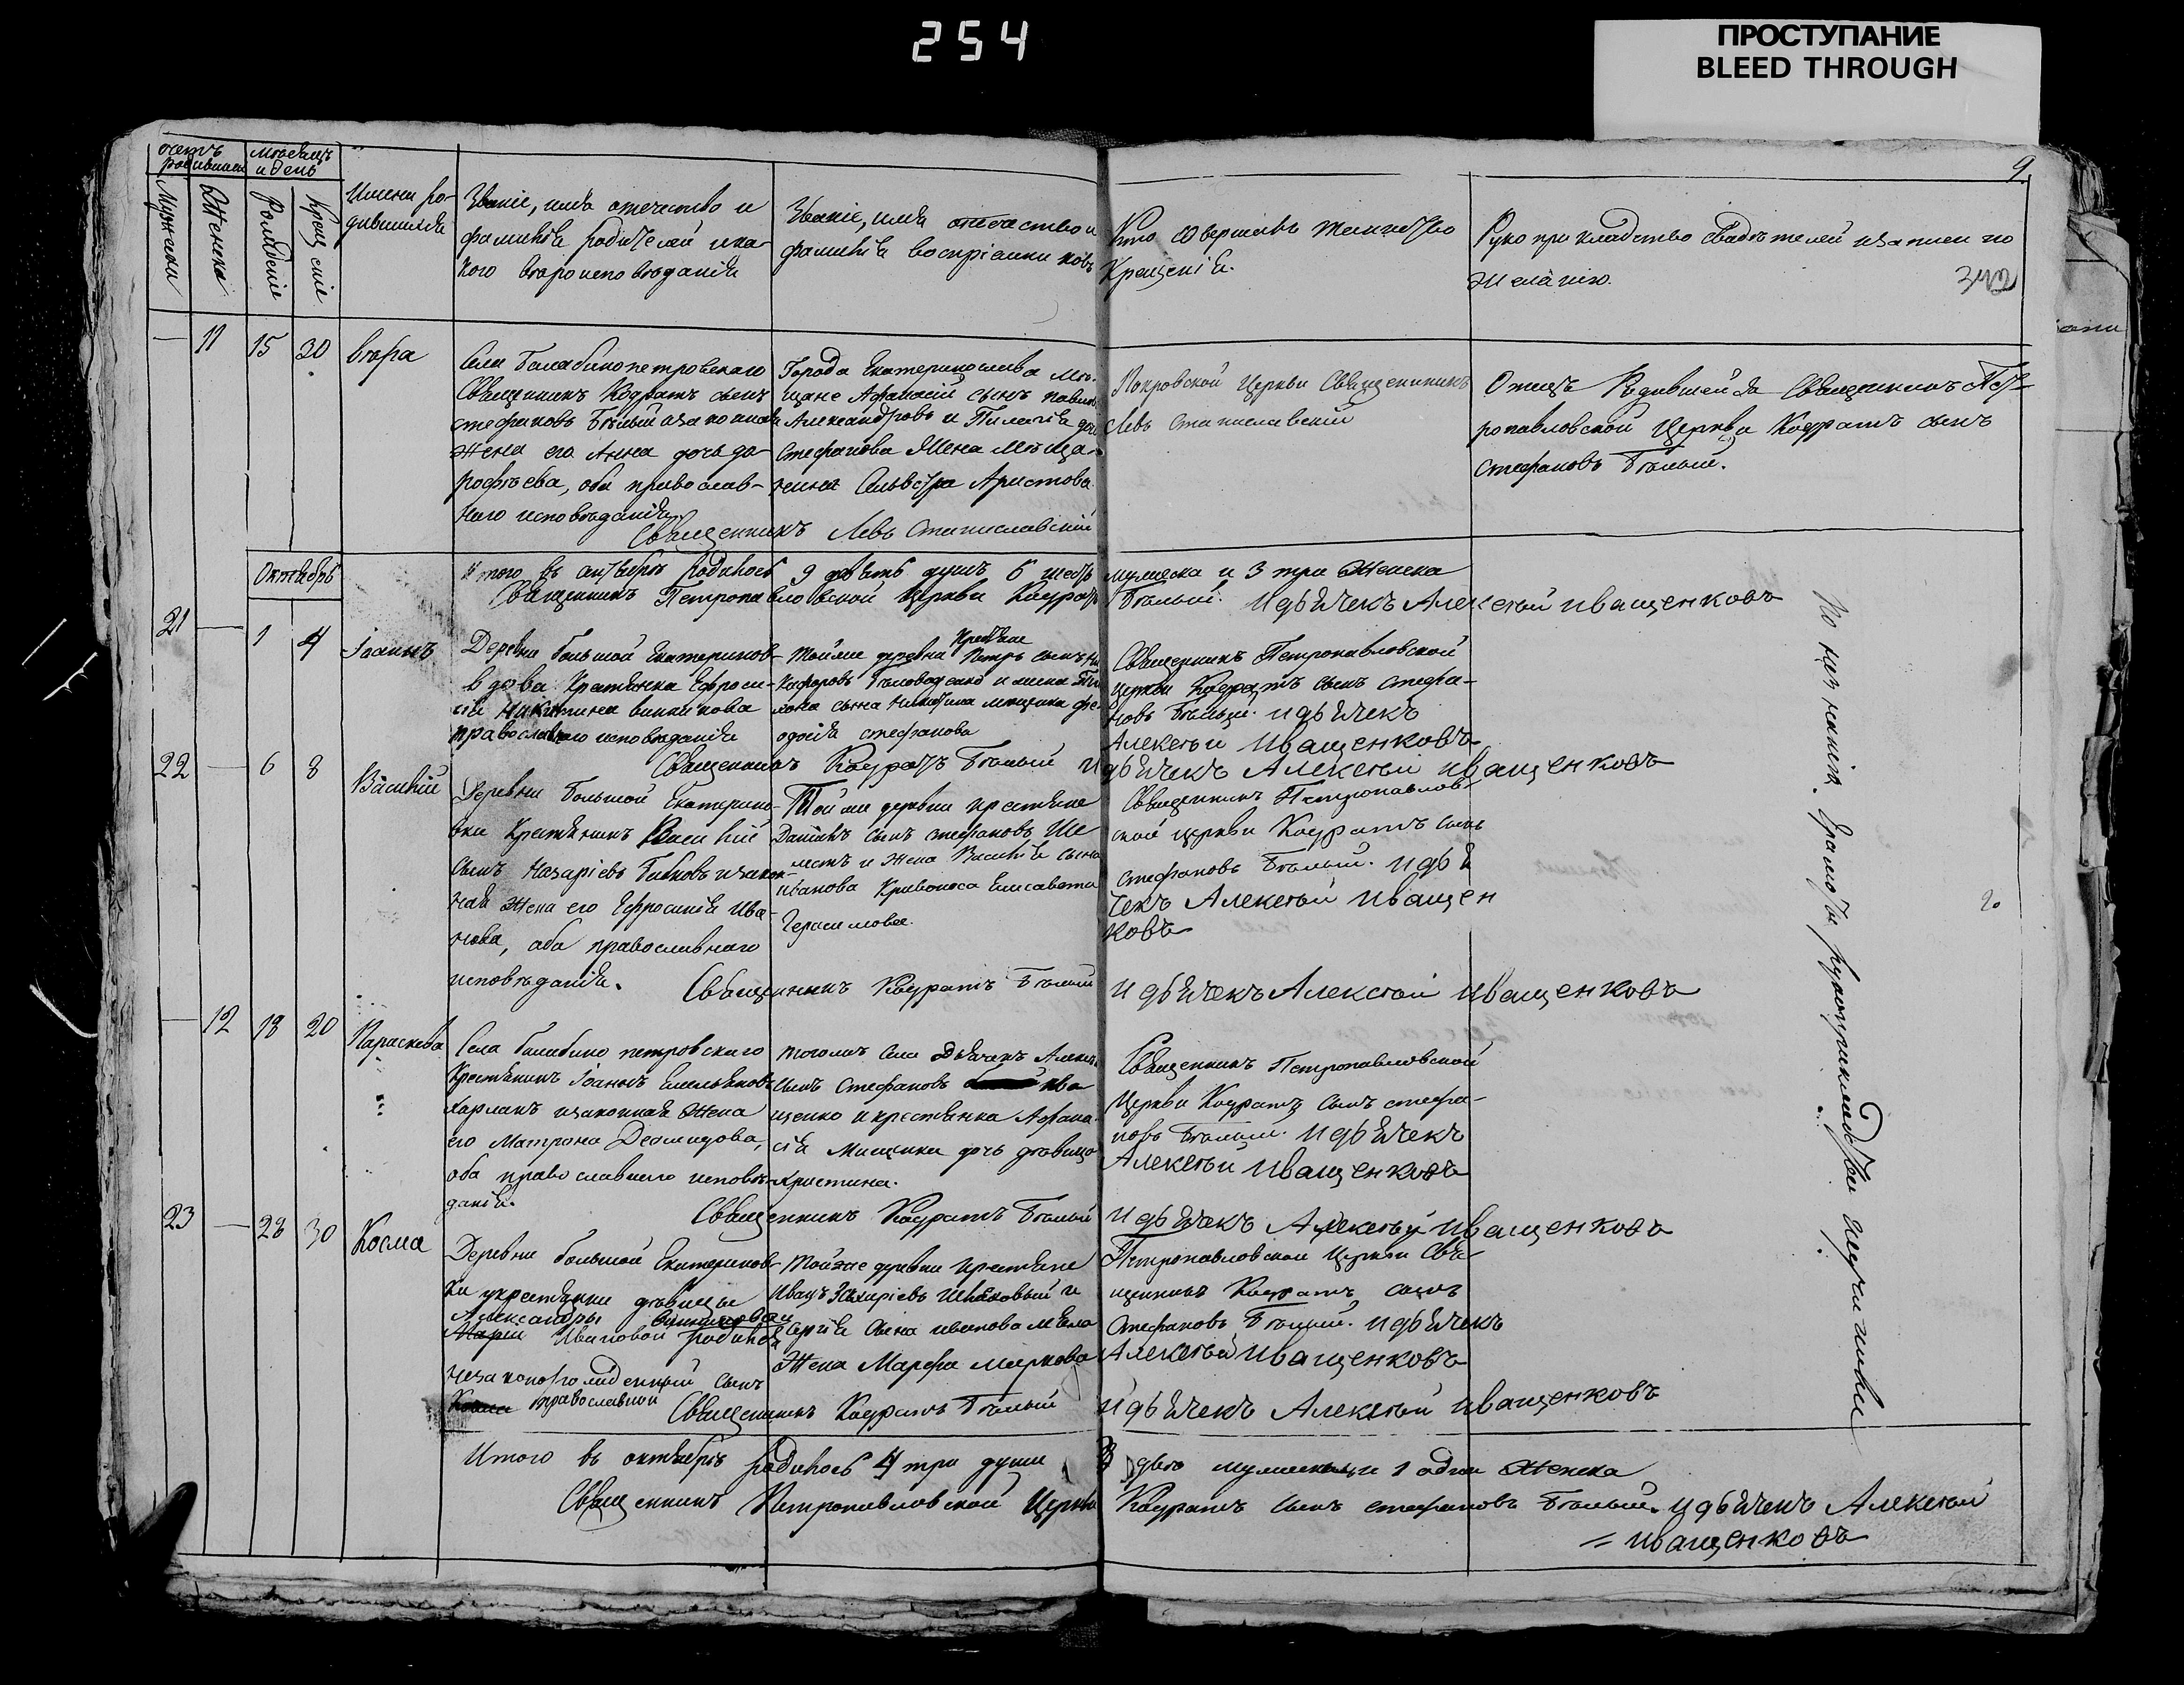 254
ПРОСТУПАНИЕ
BLEED THROUGH
9
счетъ родившихся
мѣсяцъ и день
Мужеска
Женска
Рожденіе
Крещеніе
Имена родившихся
Званіе, имя отечество и
фамилія родителей и ка-
кого вѣроисповѣданія
Званіе, имя отечество и
фамилія воспріемниковъ
Кто совершалъ таинство
Крещенія.
Рукоприкладство свидѣтелей и записи по
желанію.
11
15
30
Вѣра
Села Балабинопетровскаго
Священникъ Кодратъ сынъ
стефановъ Бѣлый и законная
жена его Анна дочь до-
рофѣева, оба православ-
наго исповѣданія
Города Екатеринослава мѣ-
щане Афанасій сынъ
Александровъ и Пелагія
Стефанова жена мѣща-
нина Сильвстра Аристова
Покровской церкви Священникъ
Левъ Станиславскій
Отецъ Родившейся Священникъ Пет-
ропавловской Церкви Кодратъ сынъ
стефановъ Бѣлый.
Священникъ Левъ Станиславскій
Итого въ октябрѣ родилось 9 девять душъ 6 шесть мужеска и 3 три женска
Священникъ Петропавловской Церкви Кодратъ Бѣлый. И дьячекъ Алексѣй иващенковъ
Октябрь
21
1
4
Іоаннъ
Деревни большой Екатеринов-
вдова Крестьянка Ефроси-
нія Никитина
православнаго исповѣданія
Тойже деревни Крестьяне Петръ сынъ Ни-
кифоровъ Бѣловоденко и жена
сына Никифила мищенка фе-
одосія стефанова
Священникъ Петропавловской
церкви Кодратъ сынъ стефа-
новъ Бѣлый. и дьячекъ
Алексѣй Иващенковъ
Священникъ Кодратъ Бѣлый и дьячекъ Алексѣй иващенковъ
22
6
8
Василій
Деревни Большой Екатерино-
вки Крестьянинъ Василій
сынъ Назаріевъ Бибковъ и закон-
ная жена его Ефросинія Ива-
нова, оба православнаго
исповѣданія.
Той же деревни крестьяне
Даніилъ сынъ стефановъ Ше-
лестъ и жена Василія сына
иванова Кривоноса Елисавета
Герасимова.
Священникъ Петропавлов-
ской церкви Кодратъ сынъ
стефановъ Бѣлый. И дья
чекъ Алексѣй Иващен
ковъ
Священникъ Кодратъ Бѣлый И дьячекъ Алексѣй Иващенковъ
12
18
20
Параскева
Села балабино петровскаго
Крестьянинъ Іоаннъ Емельяновъ
Харланъ и законная жена
его Матрона Деомидова,
оба православнаго исповѣ-
данія.
тогожъ села Дьячекъ Алексѣй
сынъ стефановъ ива
щенко и крестьянка Афана-
сія Мищенки дочь дѣвица
христина.
Священникъ Петропавловской
Церкви Кодратъ сынъ стефа-
новъ Бѣлый. И дьячекъ
Алексѣй иващенковъ
Священникъ Кодратъ Бѣлый И дьячекъ Алексѣй иващенковъ
23
28
30
Косма
Деревни большой Екатеринов-
ки у крестьянки дѣвицы
Александры
Маріи Ивановой родился
незаконорожденный сынъ
православной
Тойже деревни крестьяне
Иванъ Захаріевъ и
Сергія сына иванова
жена Марфа маркова
Петропавловской Церкви Свя-
щенникъ Кодратъ сынъ
Стефановъ Бѣлый. и дьячекъ
Алексѣй иващенковъ
Священникъ Кодратъ Бѣлый и дьячекъ Алексѣй иващенковъ
Итого въ октябрѣ родилось 4 три души двѣ мужеска и 1 одна женска
Священникъ Петропавловской Церкви Кодратъ сынъ стефановъ Бѣлый. и дьячекъ Алексѣй
= иващенковъ
По незнанію грамоты рукоприкладства неучинили